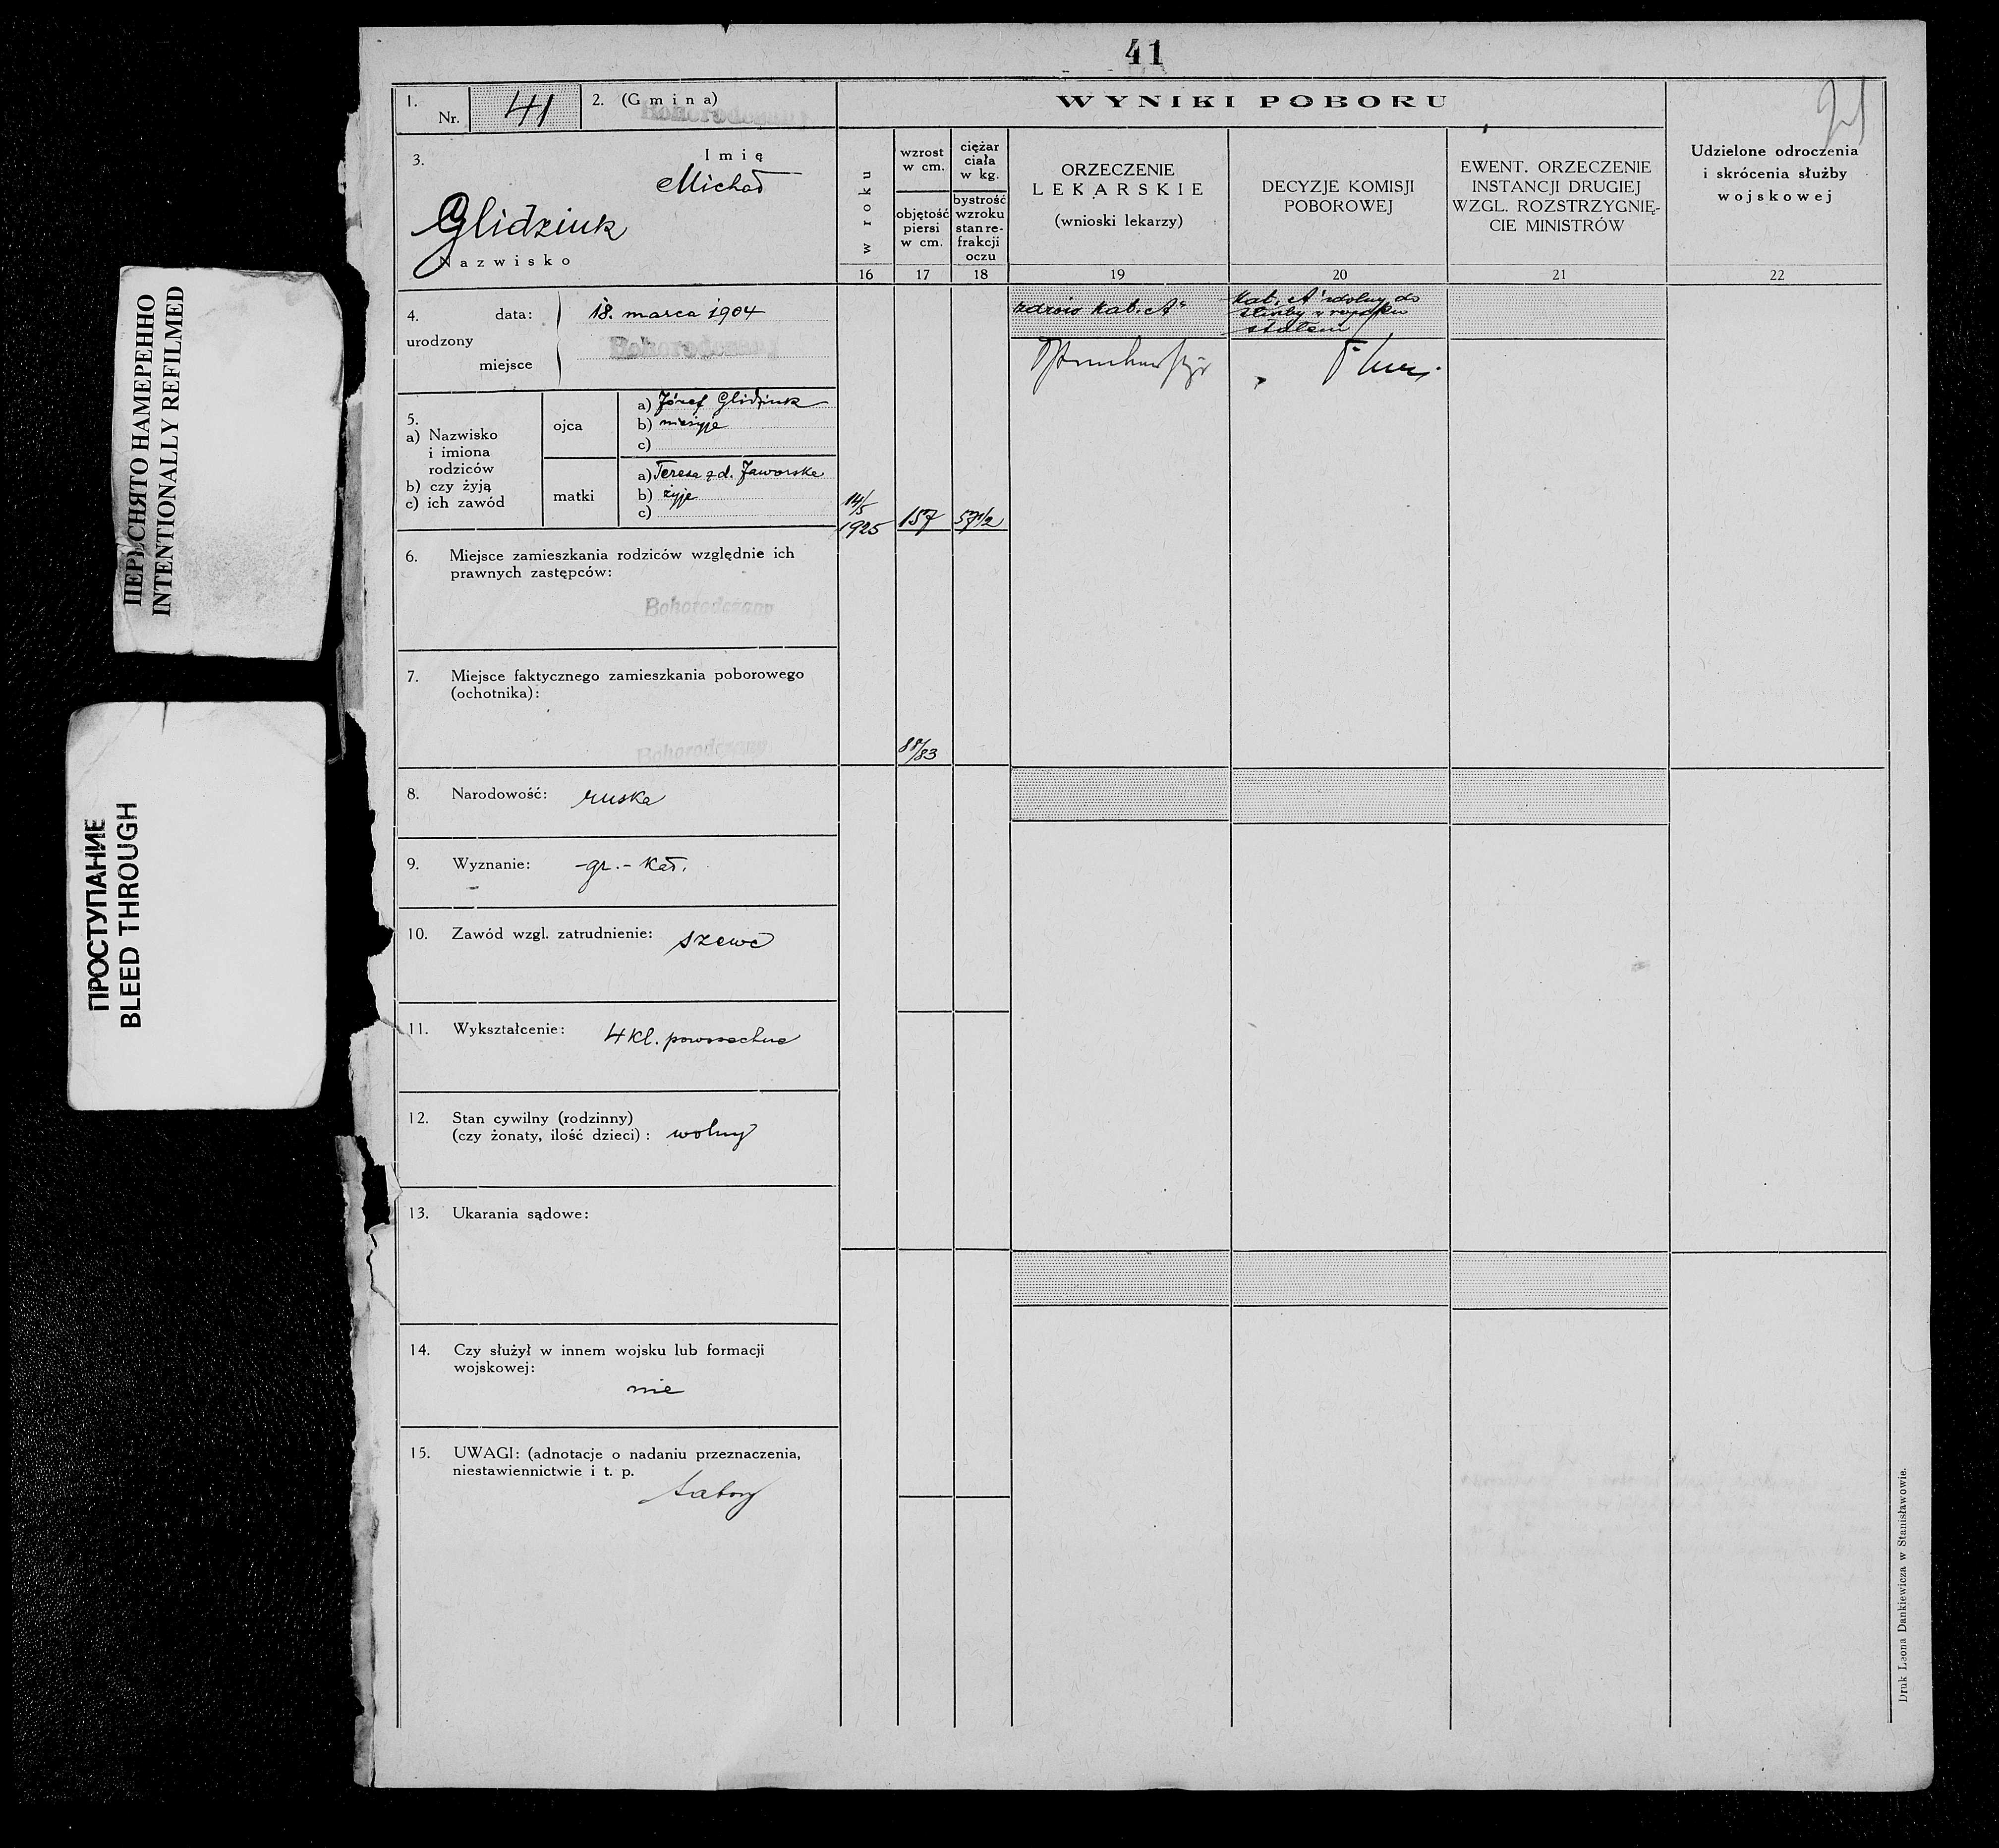 41
1.
Nr. 41
2. (Gmina)
Bohorodczany
WYNIKI POBORU
3.
Imię
Michał
Glidziuk
Nazwisko
w roku
wzrost
w cm.
objętość
piersi
w cm.
ciężar
ciała
w kg.
bystrość
wzroku
stan re-
frakcji
oczu
ORZECZENIE
LEKARSKIE
(wnioski lekarzy)
DECYZJE KOMISJI
POBOROWEJ
EWENT. ORZECZENIE
INSTANCJI DRUGIEJ
WZGL. ROZSTRZYGNIĘ-
CIE MINISTRÓW
Udzielone odroczenia
i skrócenia służby
wojskowej
16 17 18 19 20 21 22
4. data: 18. marca 1904
urodzony
miejsce
Bohorodczany
zdrów kat. A"
kat. A" zdolny do
służby w wojsku
stałem
5.
a) Nazwisko
i imiona
rodziców
b) czy żyją
c) ich zawód
ojca
a) Józef Glidziuk
b) nieżyje
c)
matki
a) Teresa z d. Jaworska
b) żyje
c)
14/5
1925
157
57 1/2
6. Miejsce zamieszkania rodziców względnie ich
prawnych zastępców:
Bohorodczany
7. Miejsce faktycznego zamieszkania poborowego
(ochotnika):
Bohorodczany
88/83
8. Narodowość: ruska
9. Wyznanie: gr.-kat.
10. Zawód wzgl. zatrudnienie: szewc
11. Wykształcenie: 4 kl. powszechne
12. Stan cywilny (rodzinny)
(czy żonaty, ilość dzieci): wolny
13. Ukarania sądowe:
14. Czy służył w innem wojsku lub formacji
wojskowej:
nie
15. UWAGI: (adnotacje o nadaniu przeznaczenia,
niestawiennictwie i t. p.
tabory
Druk Leona Dankiewicza w Stanisławowie.
ПЕРЕСНЯТО НАМЕРЕННО
INTENTIONALLY REFILMED
ПРОСТУПАНИЕ
BLEED THROUGH